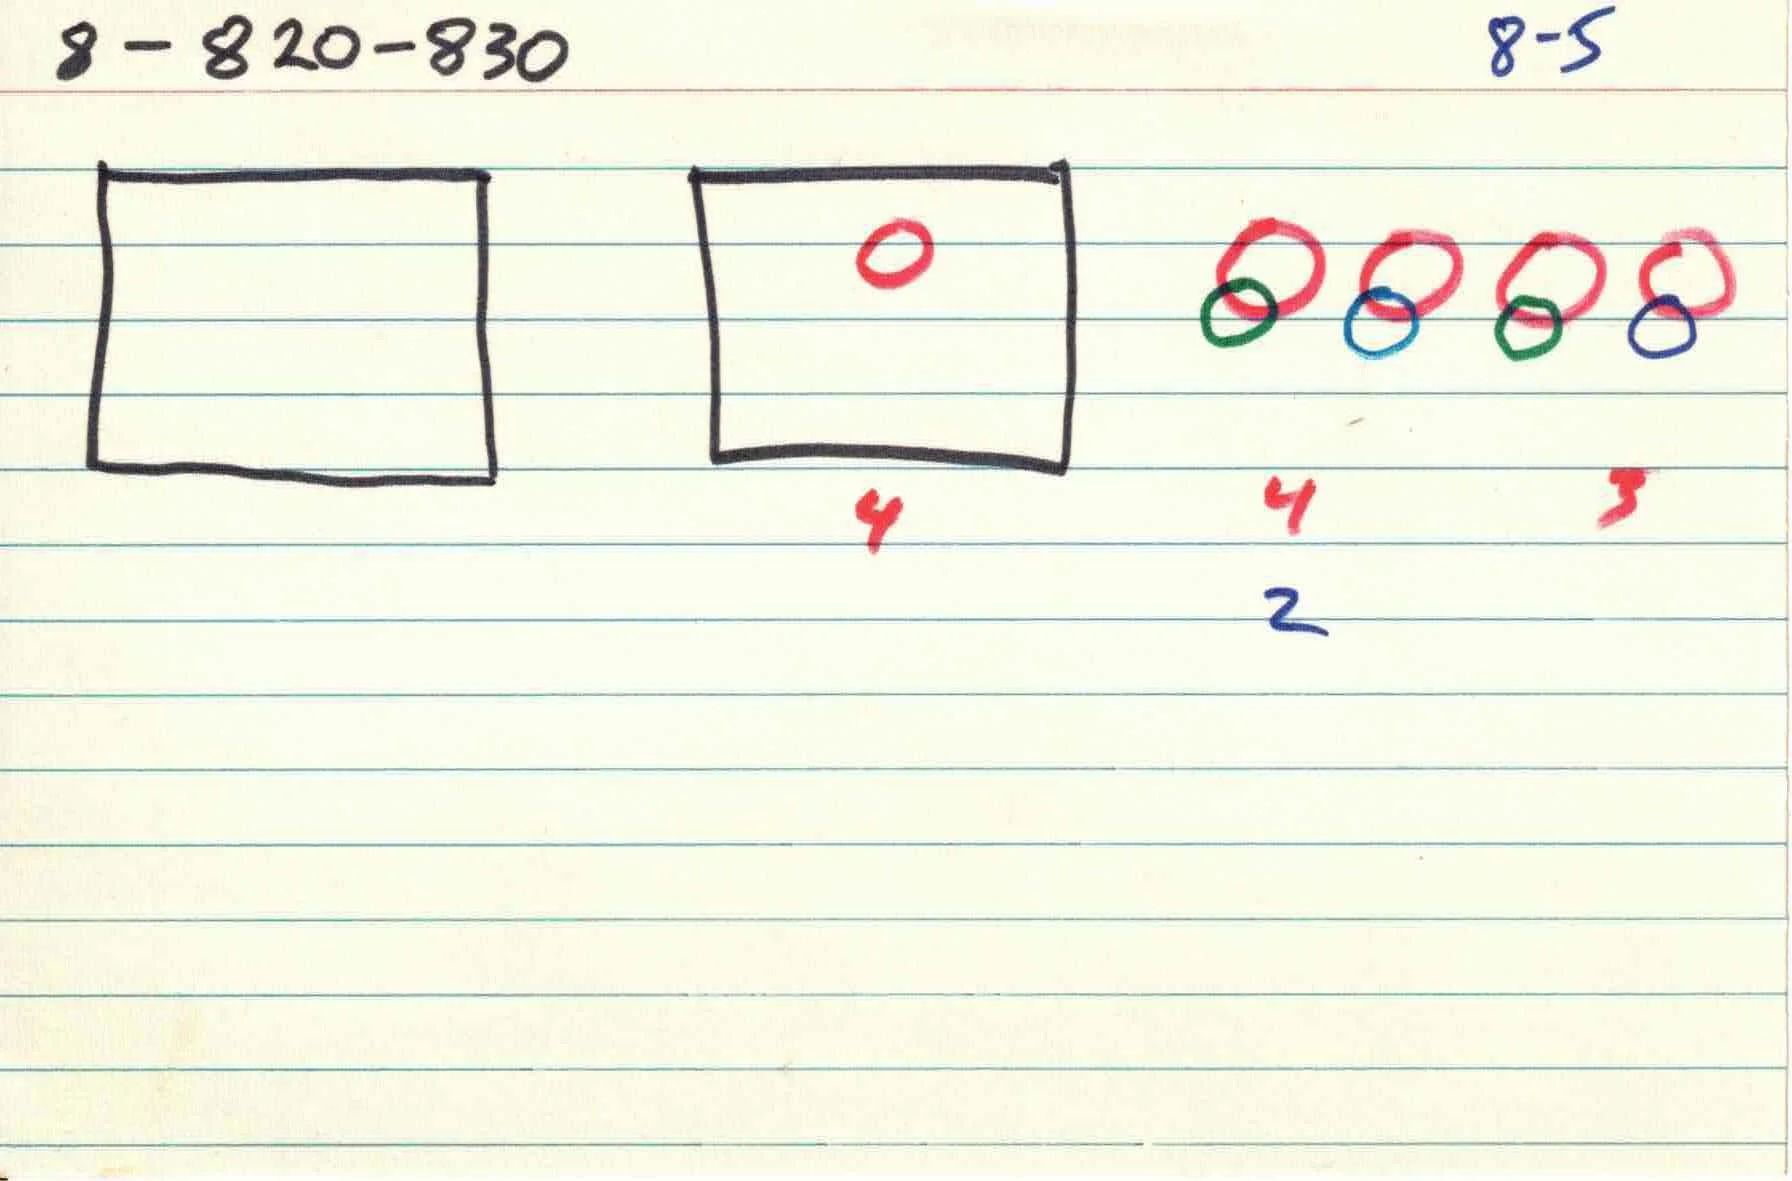 8 - 820-830 8-5
4 4 3
2